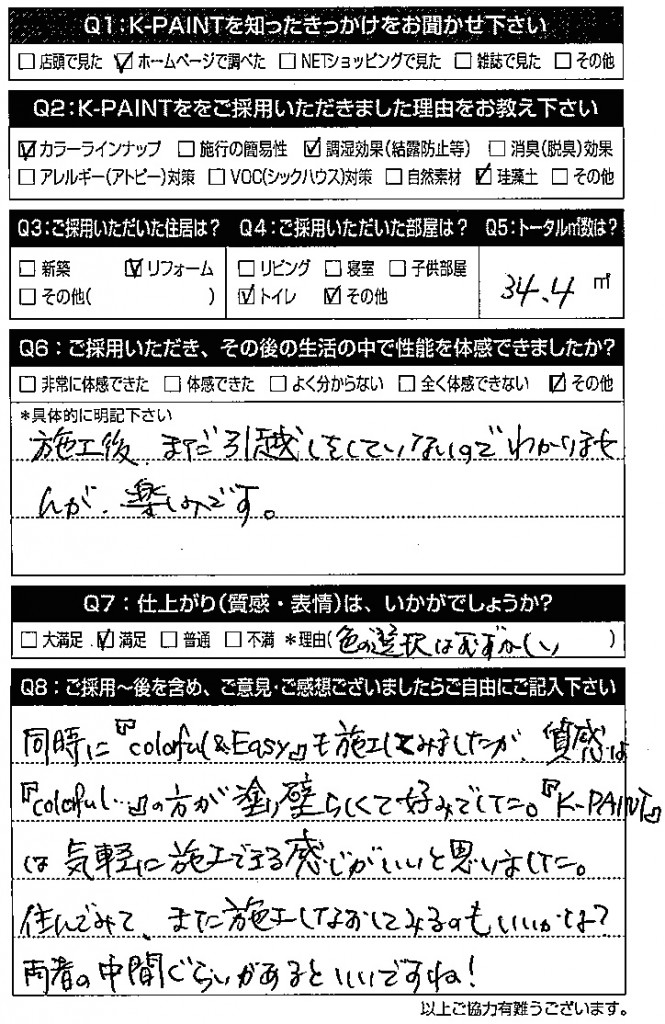 Q1:K-PAINTを知ったきっかけをお聞かせ下さい
□店頭で見た ☑ホームページで調べた □NETショッピングで見た □雑誌で見た □その他
Q2:K-PAINTををご採用いただきました理由をお教え下さい
☑カラーラインナップ □施行の簡易性 ☑調湿効果(結露防止等) □消臭(脱臭)効果
□アレルギー(アトピー)対策 □VOC(シックハウス)対策 □自然素材 ☑珪藻土 □その他
Q3:ご採用いただいた住居は?
□新築 ☑リフォーム
□その他( )
Q4:ご採用いただいた部屋は?
□リビング □寝室 □子供部屋
☑トイレ ☑その他
Q5:トータル㎡数は?
34.4 ㎡
Q6:ご採用いただき、その後の生活の中で性能を体感できましたか?
□非常に体感できた □体感できた □よく分からない □全く体感できない ☑その他
*具体的に明記下さい
施工後、まだ引越しをしていないのでわかりませ
んが、楽しみです。
Q7:仕上がり(質感・表情)は、いかがでしょうか?
□大満足 ☑満足 □普通 □不満 *理由(色の選択はむずかしい )
Q8:ご採用〜後を含め、ご意見・ご感想ございましたらご自由にご記入下さい
同時に『colorful&Easy』も施工してみましたが、質感は
『colorful…』の方が塗り壁らしくて好みでした。『K-PAINT』
は気軽に施工できる感じがいいと思いました。
住んでみて、また施工しなおしてみるのもいいかな?
両者の中間ぐらいがあるといいですね!
以上ご協力有難うございます。